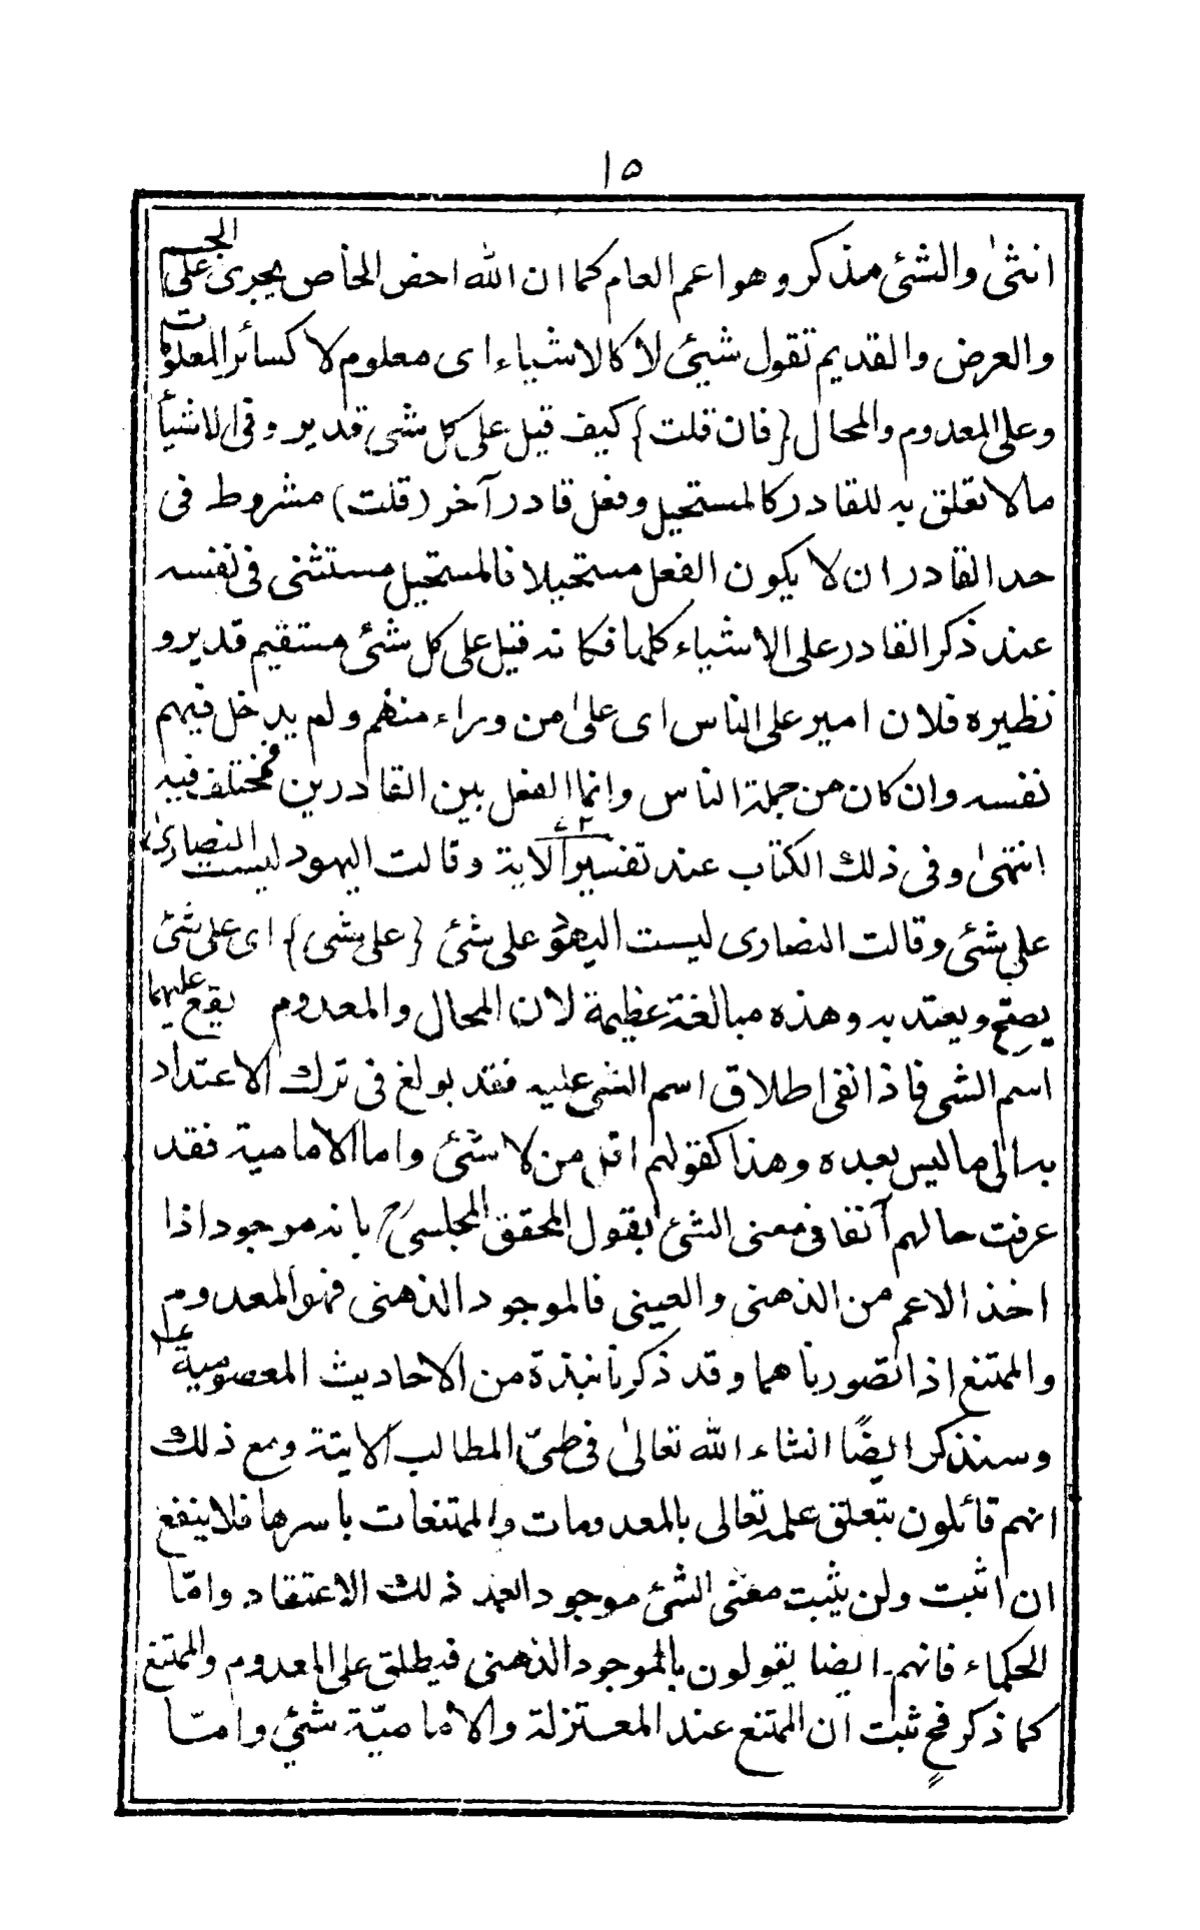 ١٥
انثىٰ والشئ مذكر وهو اعم العام كما ان الله اخص الخاص يجرى على الجسم
والعرض والقديم تقول شيئ لا كالاشياء اى معلوم لا كسائر المعلومات
وعلى المعدوم والمحال {فان قلت} كيف قيل على كل شى قدير وفى الاشيأ
مالا تعلق به للقادر كالمستحيل وفعل قادر آخر (قلت) مشروط فى
حد القادر ان لا يكون الفعل مستحيلا فالمستحيل مستثنى فى نفسه
عند ذكر القادر على الاشياء كلها فكانه قيل على كل شئ مستقيم قدير و
نظيره فلان امير على الناس اى علىٰ من وراءه منهم ولم يدخل فيهم
نفسه وان كان من جملة الناس وانما الفعل بين القادرين فمختلف فيه
انتهىٰ وفى ذلك الكتاب عند تفسير الاية وقالت اليهود ليست النصارىٰ
على شئ وقالت النصارى ليست اليهود على شئ {على شى} اى على شئ
يصح ويعتد به وهذه مبالغة عظيمة لان المحال والمعدوم يقع عليهما
اسم الشى فاذا نفى اطلاق اسم الشى عليه فقد بولغ فى ترك الاعتداد
به الى ما ليس بعده وهذا كقولهم اقل من لا شئ واما الامامية فقد
عرفت حالهم آنفا فى معنى الشئ بقول المحقق المجلسىؒ بانه موجود اذا
اخذ الاعم من الذهنى والعينى فالموجود الذهنى فهو المعدوم
والممتنع اذا تصورناهما وقد ذكرنا نبذة من الاحاديث المعصومية
وسنذكر ايضًا انشاء الله تعالىٰ فى طىّ المطالب الاتية ومع ذلك
انهم قائلون بتعلق علمه تعالى بالمعدومات والممتنعات باسرها فلا ينفع
ان اثبت ولن يثبت معنى الشئ موجود العمد ذلك الاعتقاد وامّا
الحكماء فانهم ايضا يقولون بالموجود الذهنى فيطلق على المعدوم والممتنع
كما ذكر فح ثبت ان الممتنع عند المعتزلة والاماميّة شئ وامّا